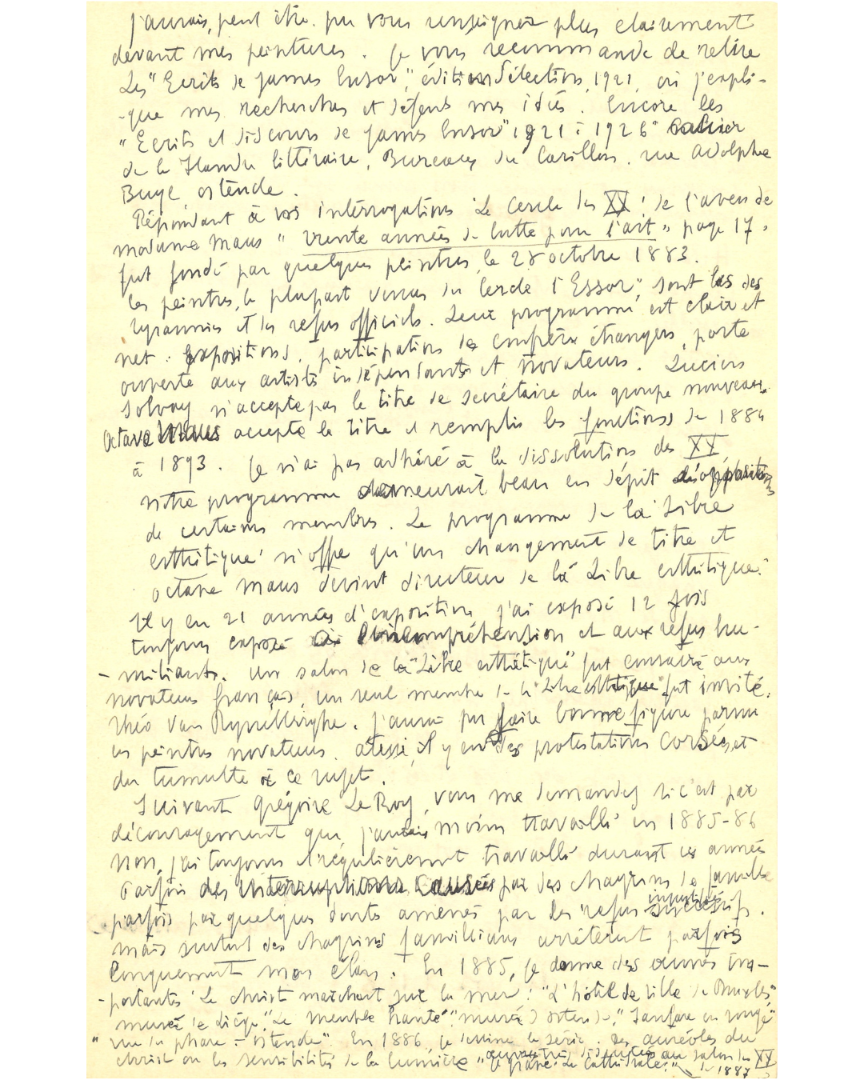 j'aurais, peut être pu vous renseigner plus clairement
devant mes peintures. Je vous recommande de relire
Les "Ecrits de James Ensor", éditions Sélection, 1921, où j'expli-
-que mes recherches et défends mes idées. Encore les
"Ecrits et discours de James Ensor" 1921 à 1926"
de la Flandre littéraire, Bureaux du Carillon, rue Adolphe
Buyl, ostende.
Répondant à vos interrogations Le Cercle des XX! de l'aveu de
madame Maus "trente années de lutte pour l'art", page 17,
fut fondé par quelques peintres, le 28 octobre 1883.
les peintres, la plupart venus du Cercle l'Essor", sont las des
tyrannies et les refus officiels. Leur programme est clair et
net: expositions, participation de confrères étrangers, porte
ouverte aux artistes indépendants et novateurs. Lucien
Solvay n'accepte pas le titre de secrétaire du groupe nouveau
octave Maus accepte le titre et remplis les fonctions de 1884
à 1893. Je n'ai pas adhéré à la dissolution des XX
notre programme demeurait beau en dépit
de certains membres. Le programme de la Libre
esthétique' n'offre qu'un changement de titre et
octave Maus devint directeur de la Libre esthétique.
Il y eu 21 années d'exposition j'ai exposé 12 fois
toujours exposé incompréhension et aux refus hu-
-miliants. Un salon de la "Libre esthétique" fut consacré aux
novateurs français, un seul membre de la "Libre esthétique" fut invité,
théo Van Rysselberghe. j'aurai pu faire bonne figure parmi
ces peintres novateurs. aussi, il y eut des protestations corsées et
du tumulte à ce sujet.
Suivant Grégoire Le Roy, vous me demandez si c'est par
découragement que j'aurais moins travaillé en 1885-86
non, j'ai toujours irrégulièrement travaillé durant ces années
Parfois des interruptions causées par des chagrins de famille
parfois par quelques doutes amenés par les refus injustifiés successifs.
mais surtout des chagrins familliaux arrêtèrent parfois
longuement mon élan. En 1885, je donne des œuvres im-
-portantes 'Le christ marchant sur la mer': "L'hôtel de ville de Bruxelles"
musée de Liège, "Le meuble hanté" "musée d'ostende,"
"vue du phare - ostende" En 1886 je dessine la série des auréoles du
christ ou les sensibilités de la lumière au salon des XX
de 1887